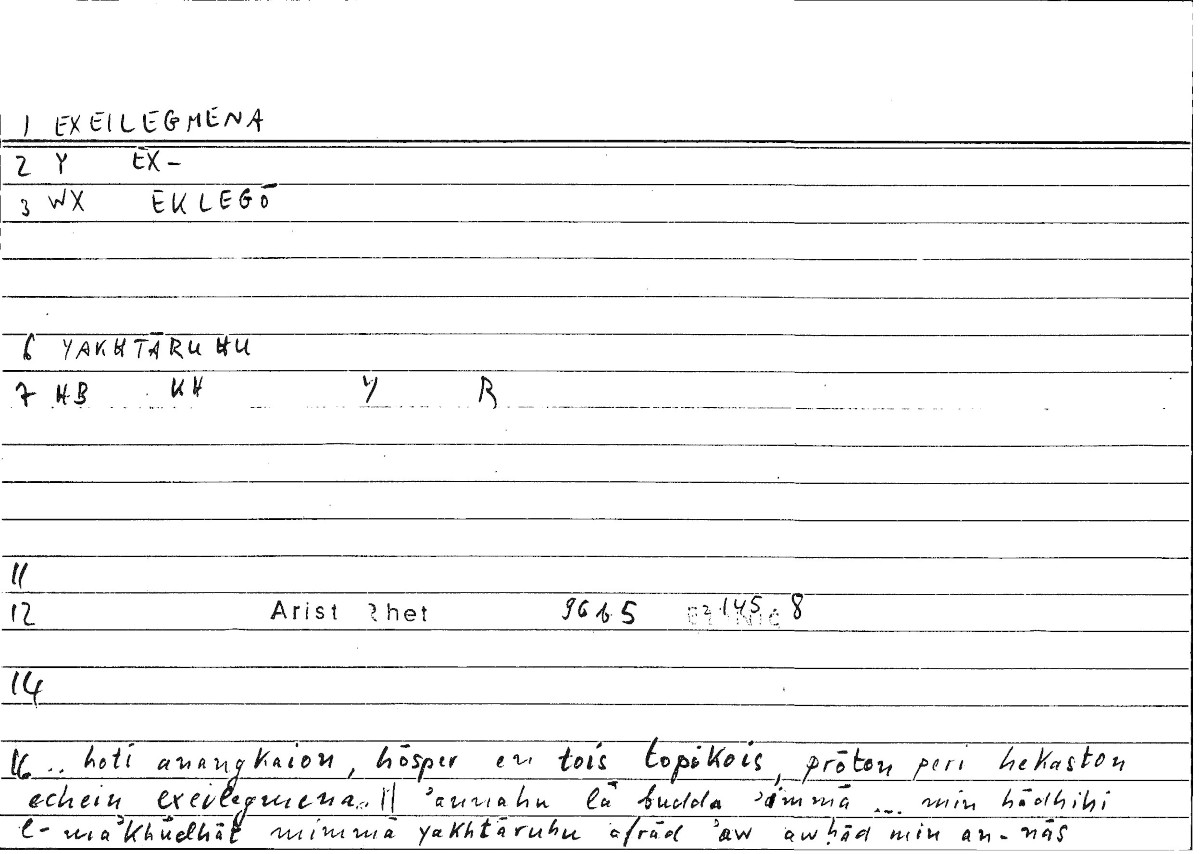 1 EXEILEGMENA
2 Y EX-
3 WX EKLEGŌ
6 YAKHTĀRUHU
7 HB KH Y R
11
12 Arist Rhet 96b5 145 8
14
16 .. hoti anangkaion, hōsper en tois topikois, prōton peri hekaston
echein exeilegmena.. || 'annahu lā budda 'immā ... min hādhihi
l-ma'khūdhāt mimmā yakhtāruhu afrād 'aw awḥād min an-nās